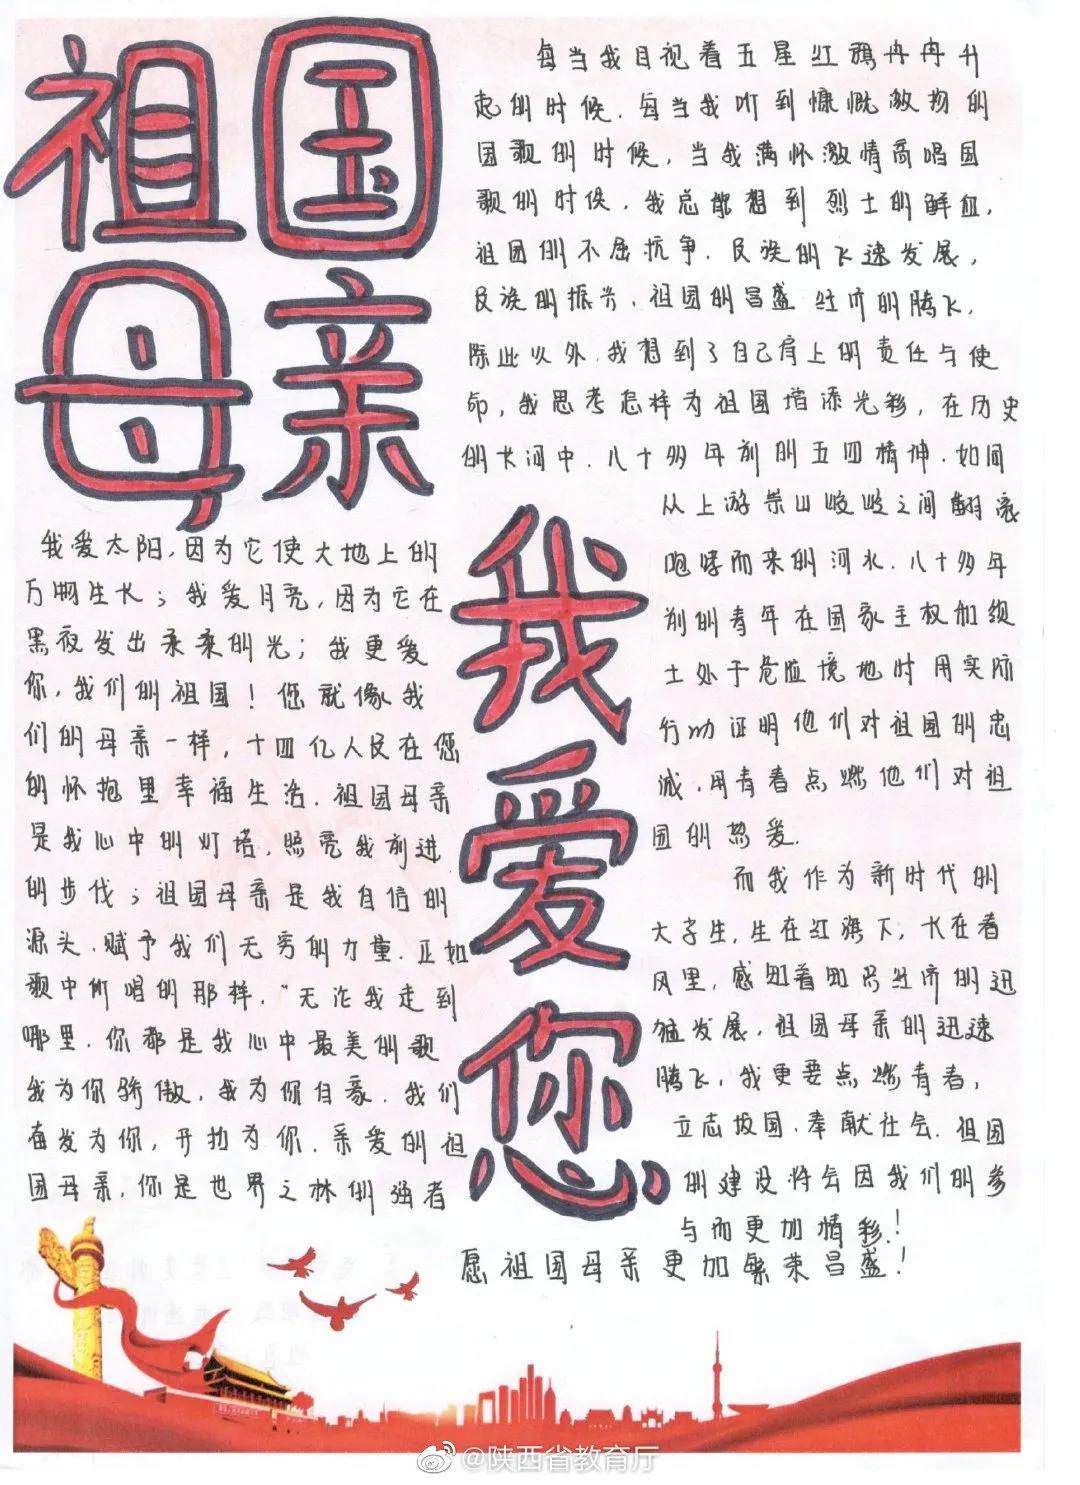 祖国
母亲
我爱您
我爱太阳，因为它使大地上的
万物生长；我爱月亮，因为它在
黑夜发出柔柔的光；我更爱
你，我们的祖国！您就像我
们的母亲一样，十四亿人民在您
的怀抱里幸福生活．祖国母亲
是我心中的灯塔，照亮我前进
的步伐；祖国母亲是我自信的
源头．赋予我们无穷的力量．正如
歌中所唱的那样，“无论我走到
哪里．你都是我心中最美的歌
我为你骄傲，我为你自豪．我们
奋发为你，开拓为你．亲爱的祖
国母亲，你是世界之林的强者
每当我目视着五星红旗冉冉升
起的时候．每当我听到慷慨激扬的
国歌的时候，当我满怀激情高唱国
歌的时候．我总能想到烈士的鲜血，
祖国的不屈抗争．民族的飞速发展，
民族的振兴．祖国的昌盛 经济的腾飞，
除此以外．我想到了自己肩上的责任与使
命，我思考怎样为祖国增添光彩，在历史
的长河中．八十多年前的五四精神．如同
从上游崇山峻岭之间翻滚
咆哮而来的河水．八十多年
前的青年在国家主权加领
土处于危险境地时用实际
行动证明他们对祖国的忠
诚．用青春点燃他们对祖
国的热爱．
而我作为新时代的
大学生，生在红旗下，长在春
风里，感知着知识经济的迅
猛发展，祖国母亲的迅速
腾飞，我更要点燃青春，
立志报国．奉献社会．祖国
的建设将会因我们的参
与而更加精彩！
愿祖国母亲更加繁荣昌盛！
@陕西省教育厅